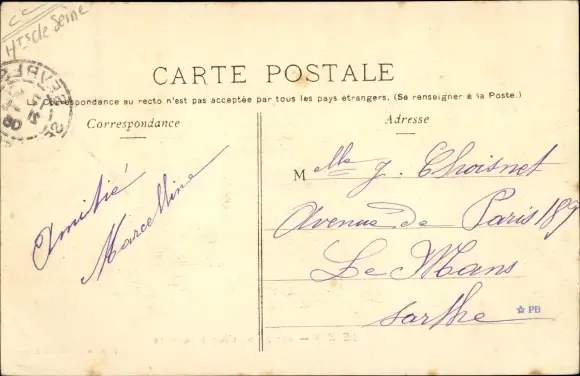 CC
Hts de Seine
CARTE POSTALE
Correspondance au recto n'est pas acceptée par tous les pays étrangers. (Se renseigner à la Poste.)
Correspondance
Amitié
Marcelline
Adresse
Melle J. Choisnet
Avenue de Paris 189
Le Mans
Sarthe
☆ PB